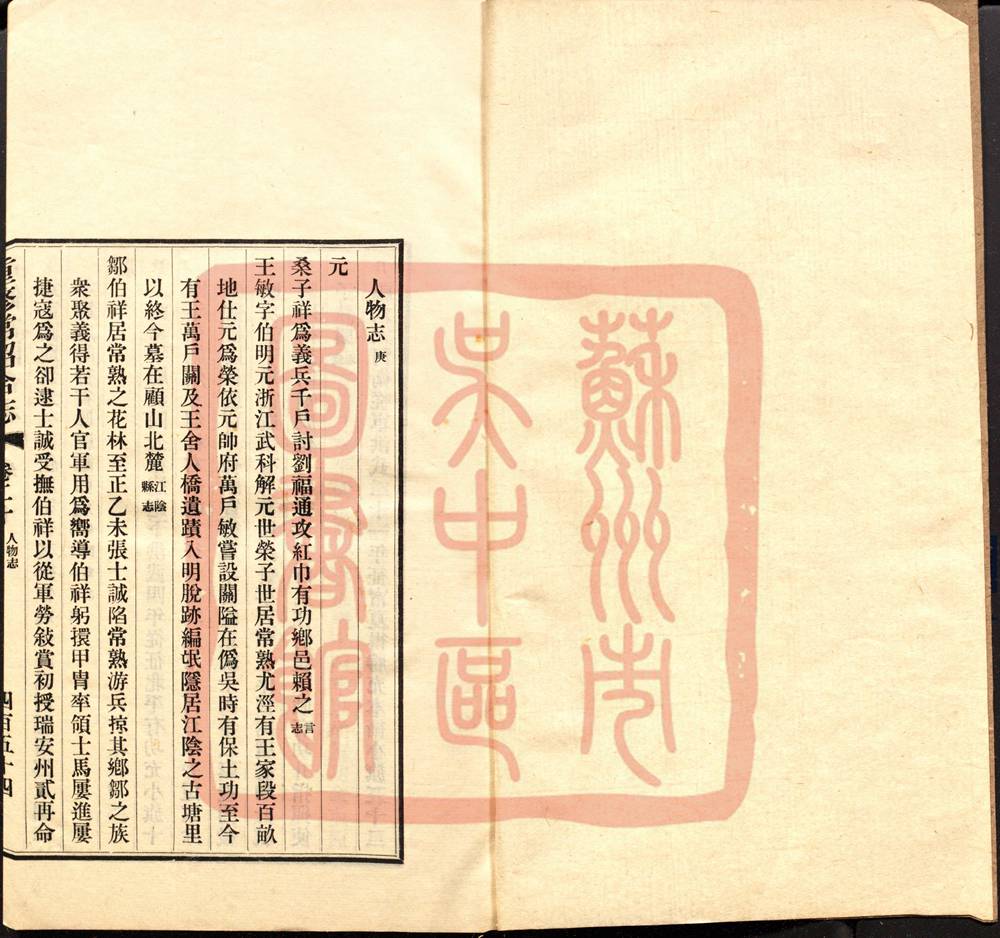 人物志 庚
元
桑子祥爲義兵千戶討劉福通攻紅巾有功鄉邑賴之 言志
王敏字伯明元浙江武科解元世榮子世居常熟尤涇有王家段百畝
地仕元爲榮依元帥府萬戶敏嘗設關隘在僞吳時有保土功至今
有王萬戶關及王舍人橋遺蹟入明脫跡編氓隱居江陰之古塘里
以終今墓在顧山北麓 江陰縣志
鄒伯祥居常熟之花林至正乙未張士誠陷常熟游兵掠其鄉鄒之族
衆聚義得若干人官軍用爲嚮導伯祥躬擐甲冑率領士馬屢進屢
捷寇爲之卻逮士誠受撫伯祥以從軍勞敍賞初授瑞安州貳再命
重修常昭合志 卷二十 人物志 四百五十四
蘇州市
吳中區
圖書館